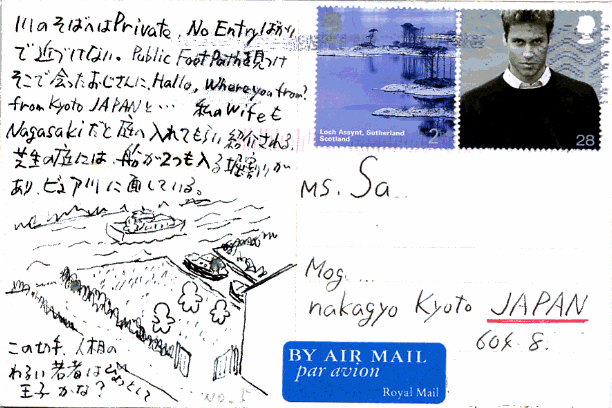 川のそばへはPrivate, No Entryばかり
で近づけない。Public Foot Pathを見つけ
そこで会ったおじさんに、Hallo, Where you from?
from Kyoto JAPANと… 私のWifeも
Nagasakiだと庭へ入れてもらい紹介される。
芝生の庭には、船が2つも入る堀割りが
あり、ピュア川に面している。
この切手、人相の
わるい若者は
王子かな?
Loch Assynt, Sutherland
Scotland
2
28
MS. Sa
Mog
nakagyo Kyoto JAPAN
604-8
BY AIR MAIL
par avion
Royal Mail